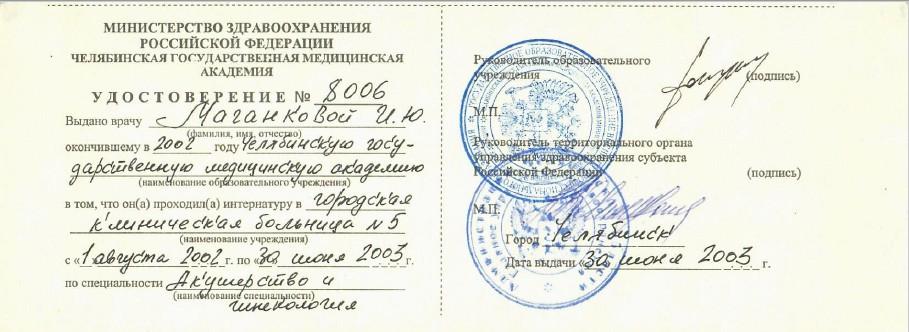 МИНИСТЕРСТВО ЗДРАВООХРАНЕНИЯ
РОССИЙСКОЙ ФЕДЕРАЦИИ
ЧЕЛЯБИНСКАЯ ГОСУДАРСТВЕННАЯ МЕДИЦИНСКАЯ
АКАДЕМИЯ
УДОСТОВЕРЕНИЕ № 8006
Выдано врачу Маганковой И.Ю.
(фамилия, имя, отчество)
окончившему в 2002 году Челябинскую госу-
дарственную медицинскую академию
(наименование образовательного учреждения)
в том, что он(а) проходил(а) интернатуру в городская
клиническая больница №5
(наименование учреждения)
с «1 августа 2002 г. по «30 июня 2003 г.
по специальности Акушерство и
(наименование специальности)
гинекология
Руководитель образовательного
учреждения
(подпись)
М.П.
Руководитель территориального органа
управления здравоохранения субъекта
Российской Федерации
(подпись)
М.П.
Город Челябинск
Дата выдачи «30 июня 2003 г.